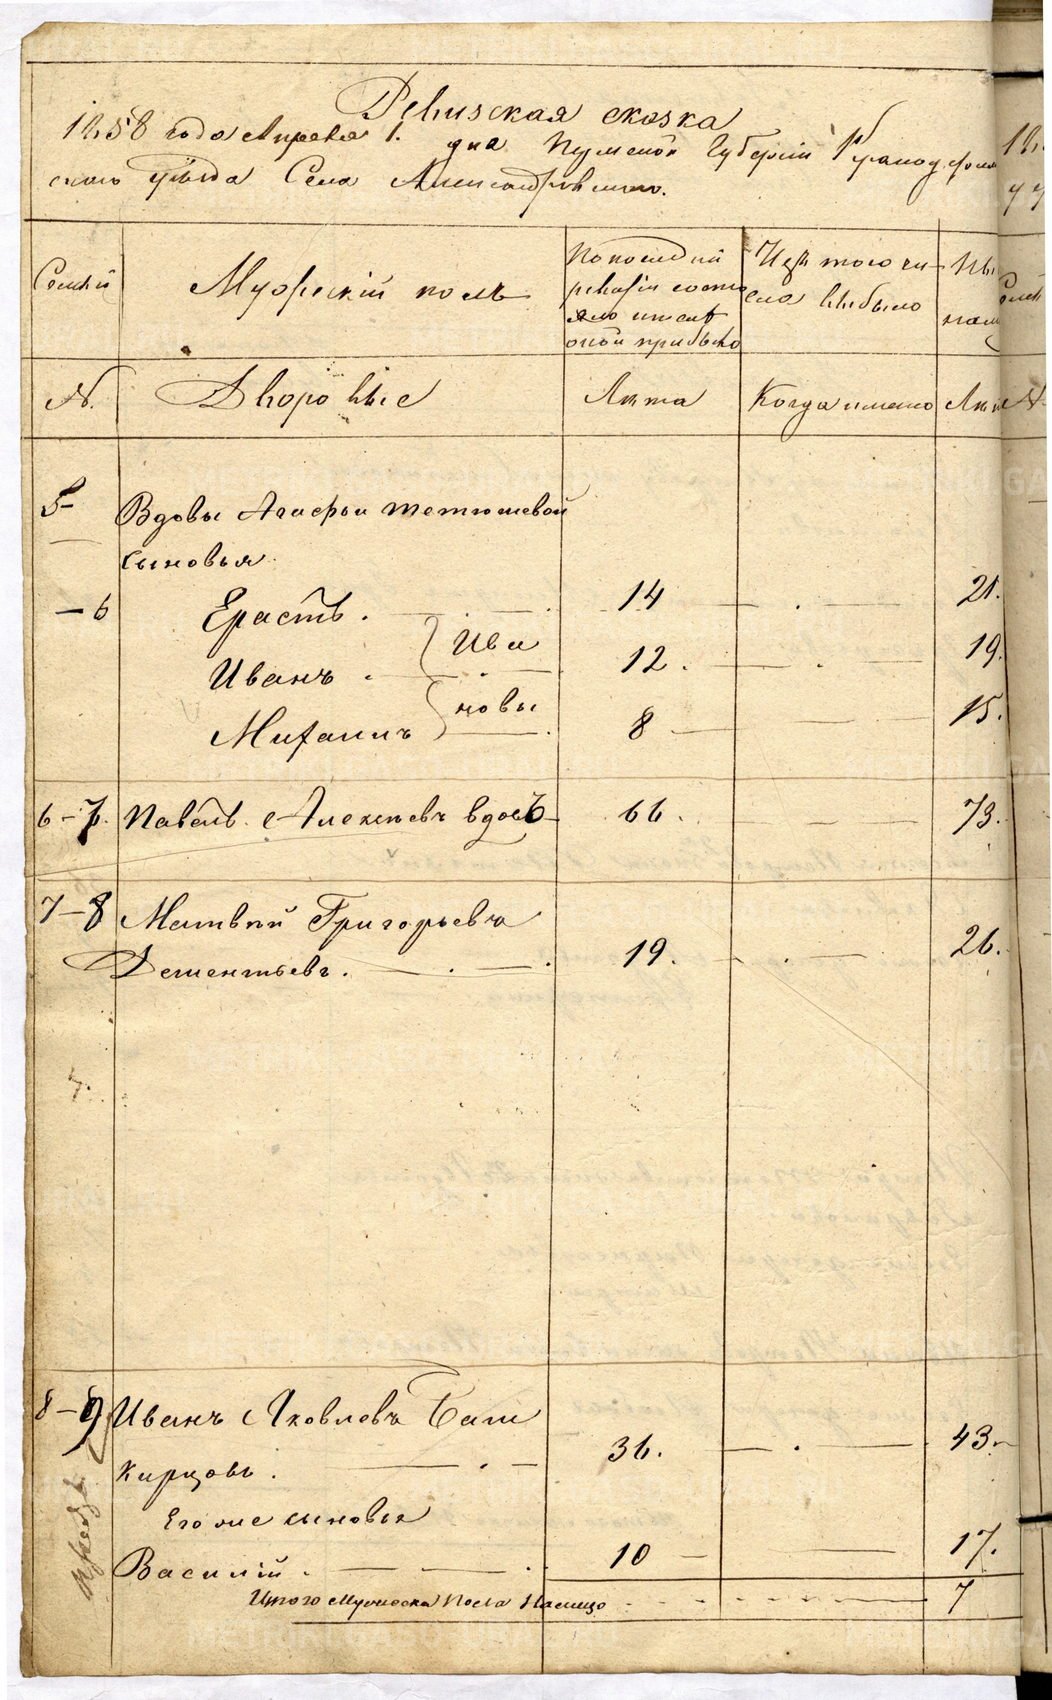 Ревизская сказка
1858 года апреля 1. дня Пермской Губернии Красноуфим
скаго уѣзда Села Александровскаго.
Семьи
Мужескій полъ
По послѣдней
ревизіи состо
яло и послѣ
оной прибыло
Изъ того чи
сла выбыло
№.
Дворовые
Лѣта
Когда именно
Лѣта
5-
Вдовы Агафьи Тетюшевой
сыновья
-6
Ерастъ.
14
21.
Ива
Иванъ.
12.
19.
новы
Михаилъ
8
15.
6-7. Павелъ Алексѣевъ вдовъ
66.
73.
7-8 Матвѣй Григорьевъ
Дементьевъ.
19.
26.
8-9 Иванъ Яковлевъ Баш
кирцовъ.
36.
43.
Его же сыновья
Василій.
10
17.
Итого Мужеска Пола На лицо
7